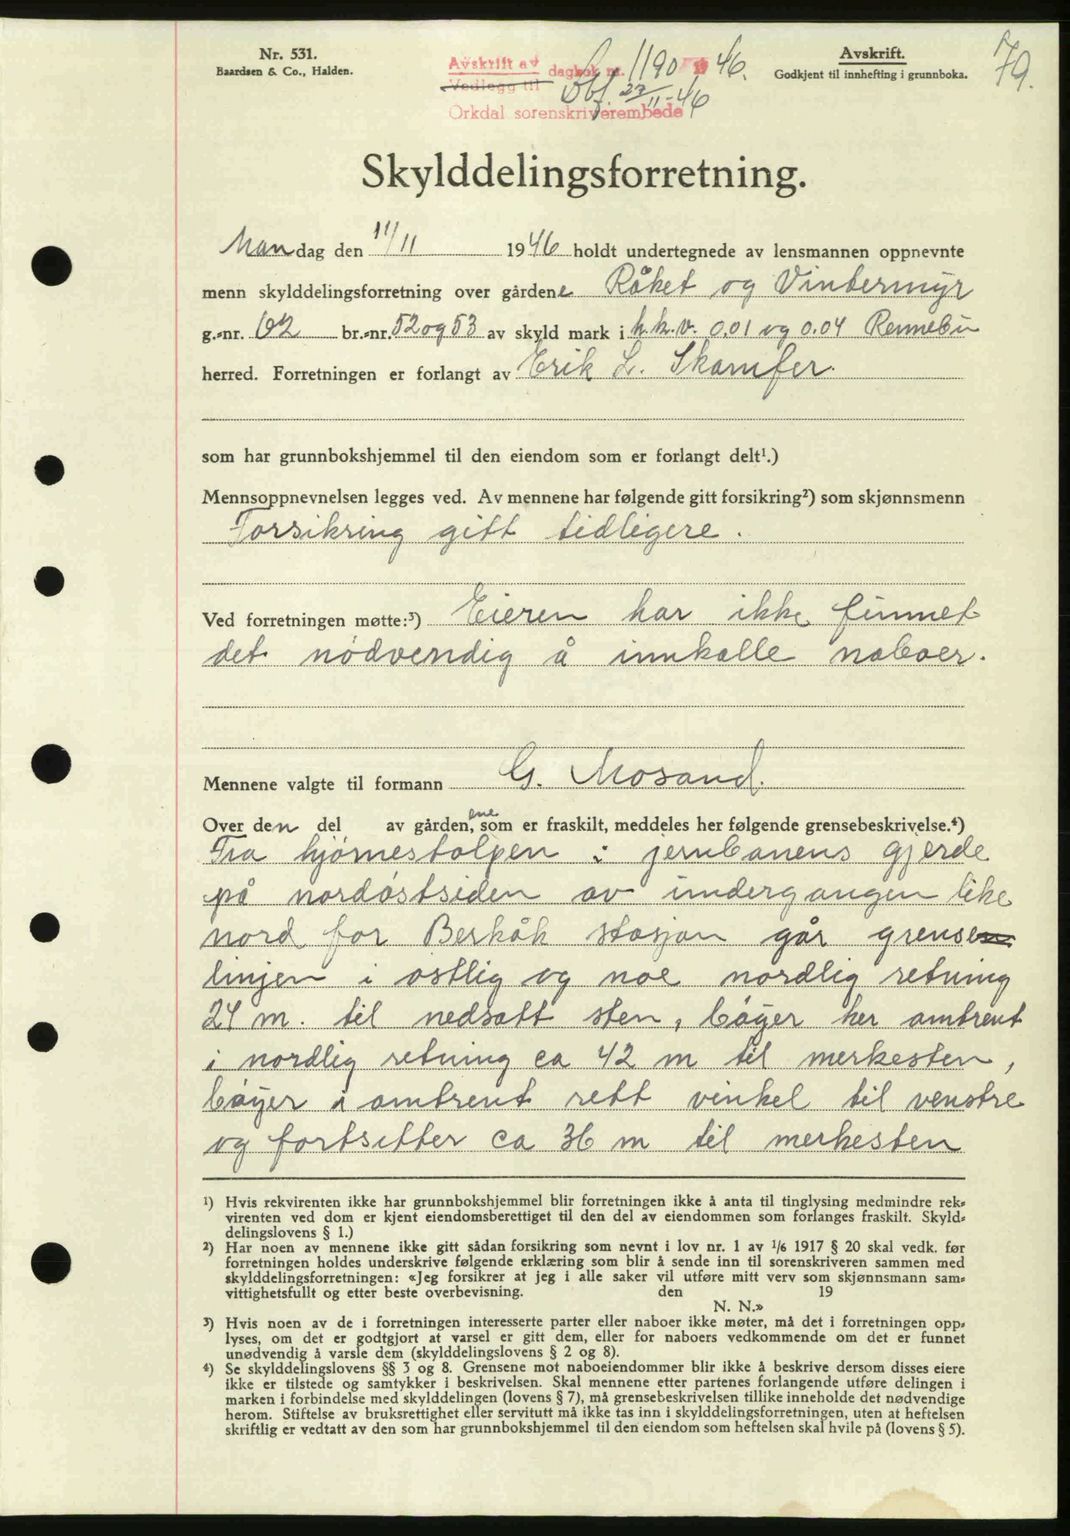 Nr. 531.
Baardsen & Co., Halden.
Avskrift av
Vedlegg til
dagbok nr. 1190 46.
Dbf. 27/11-46
Orkdal sorenskriverembede
Avskrift.
Godkjent til innhefting i grunnboka.
79.
Skylddelingsforretning.
Mandag den 11/11 1946 holdt undertegnede av lensmannen oppnevnte
menn skylddelingsforretning over gårdene Råket og Vintermyr
g.-nr. 62 br.-nr. 52 og 53 av skyld mark i h.h.v. 0.01 og 0.04 Rennebu
herred. Forretningen er forlangt av Erik L. Skamfer.
som har grunnbokshjemmel til den eiendom som er forlangt delt¹.)
Mennsoppnevnelsen legges ved. Av mennene har følgende gitt forsikring²) som skjønnsmenn
Forsikring gitt tidligere.
Ved forretningen møtte:³) Eieren har ikke funnet
det nødvendig å innkalle naboer.
Mennene valgte til formann G. Mosand.
Over den del av gårdenene, som er fraskilt, meddeles her følgende grensebeskrivelse.⁴)
Fra hjørnestolpen i jernbanens gjerde
på nordøstsiden av undergangen like
nord for Berkåk stasjon går grense
linjen i østlig og noe nordlig retning
24 m. til nedsatt sten, bøyer her omtrent
i nordlig retning ca 42 m til merkesten,
bøyer i omtrent rett vinkel til venstre
og fortsetter ca 36 m til merkesten
¹) Hvis rekvirenten ikke har grunnbokshjemmel blir forretningen ikke å anta til tinglysing medmindre rek-
virenten ved dom er kjent eiendomsberettiget til den del av eiendommen som forlanges fraskilt. Skyld-
delingslovens § 1.)
²) Har noen av mennene ikke gitt sådan forsikring som nevnt i lov nr. 1 av 1/6 1917 § 20 skal vedk. før
forretningen holdes underskrive følgende erklæring som blir å sende inn til sorenskriveren sammen med
skylddelingsforretningen: «Jeg forsikrer at jeg i alle saker vil utføre mitt verv som skjønnsmann sam-
vittighetsfullt og etter beste overbevisning. den 19
N. N.»
³) Hvis noen av de i forretningen interesserte parter eller naboer ikke møter, må det i forretningen opp-
lyses, om det er godtgjort at varsel er gitt dem, eller for naboers vedkommende om det er funnet
unødvendig å varsle dem (skylddelingslovens § 2 og 8).
⁴) Se skylddelingslovens §§ 3 og 8. Grensene mot naboeiendommer blir ikke å beskrive dersom disses eiere
ikke er tilstede og samtykker i beskrivelsen. Skal mennene etter partenes forlangende utføre delingen i
marken i forbindelse med skylddelingen (lovens § 7), må grensebeskrivelsen tillike inneholde det nødvendige
herom. Stiftelse av bruksrettighet eller servitutt må ikke tas inn i skylddelingsforretningen, uten at heftelsen
skriftlig er vedtatt av den som har grunnbokshjemmel til den eiendom som heftelsen skal hvile på (lovens § 5).